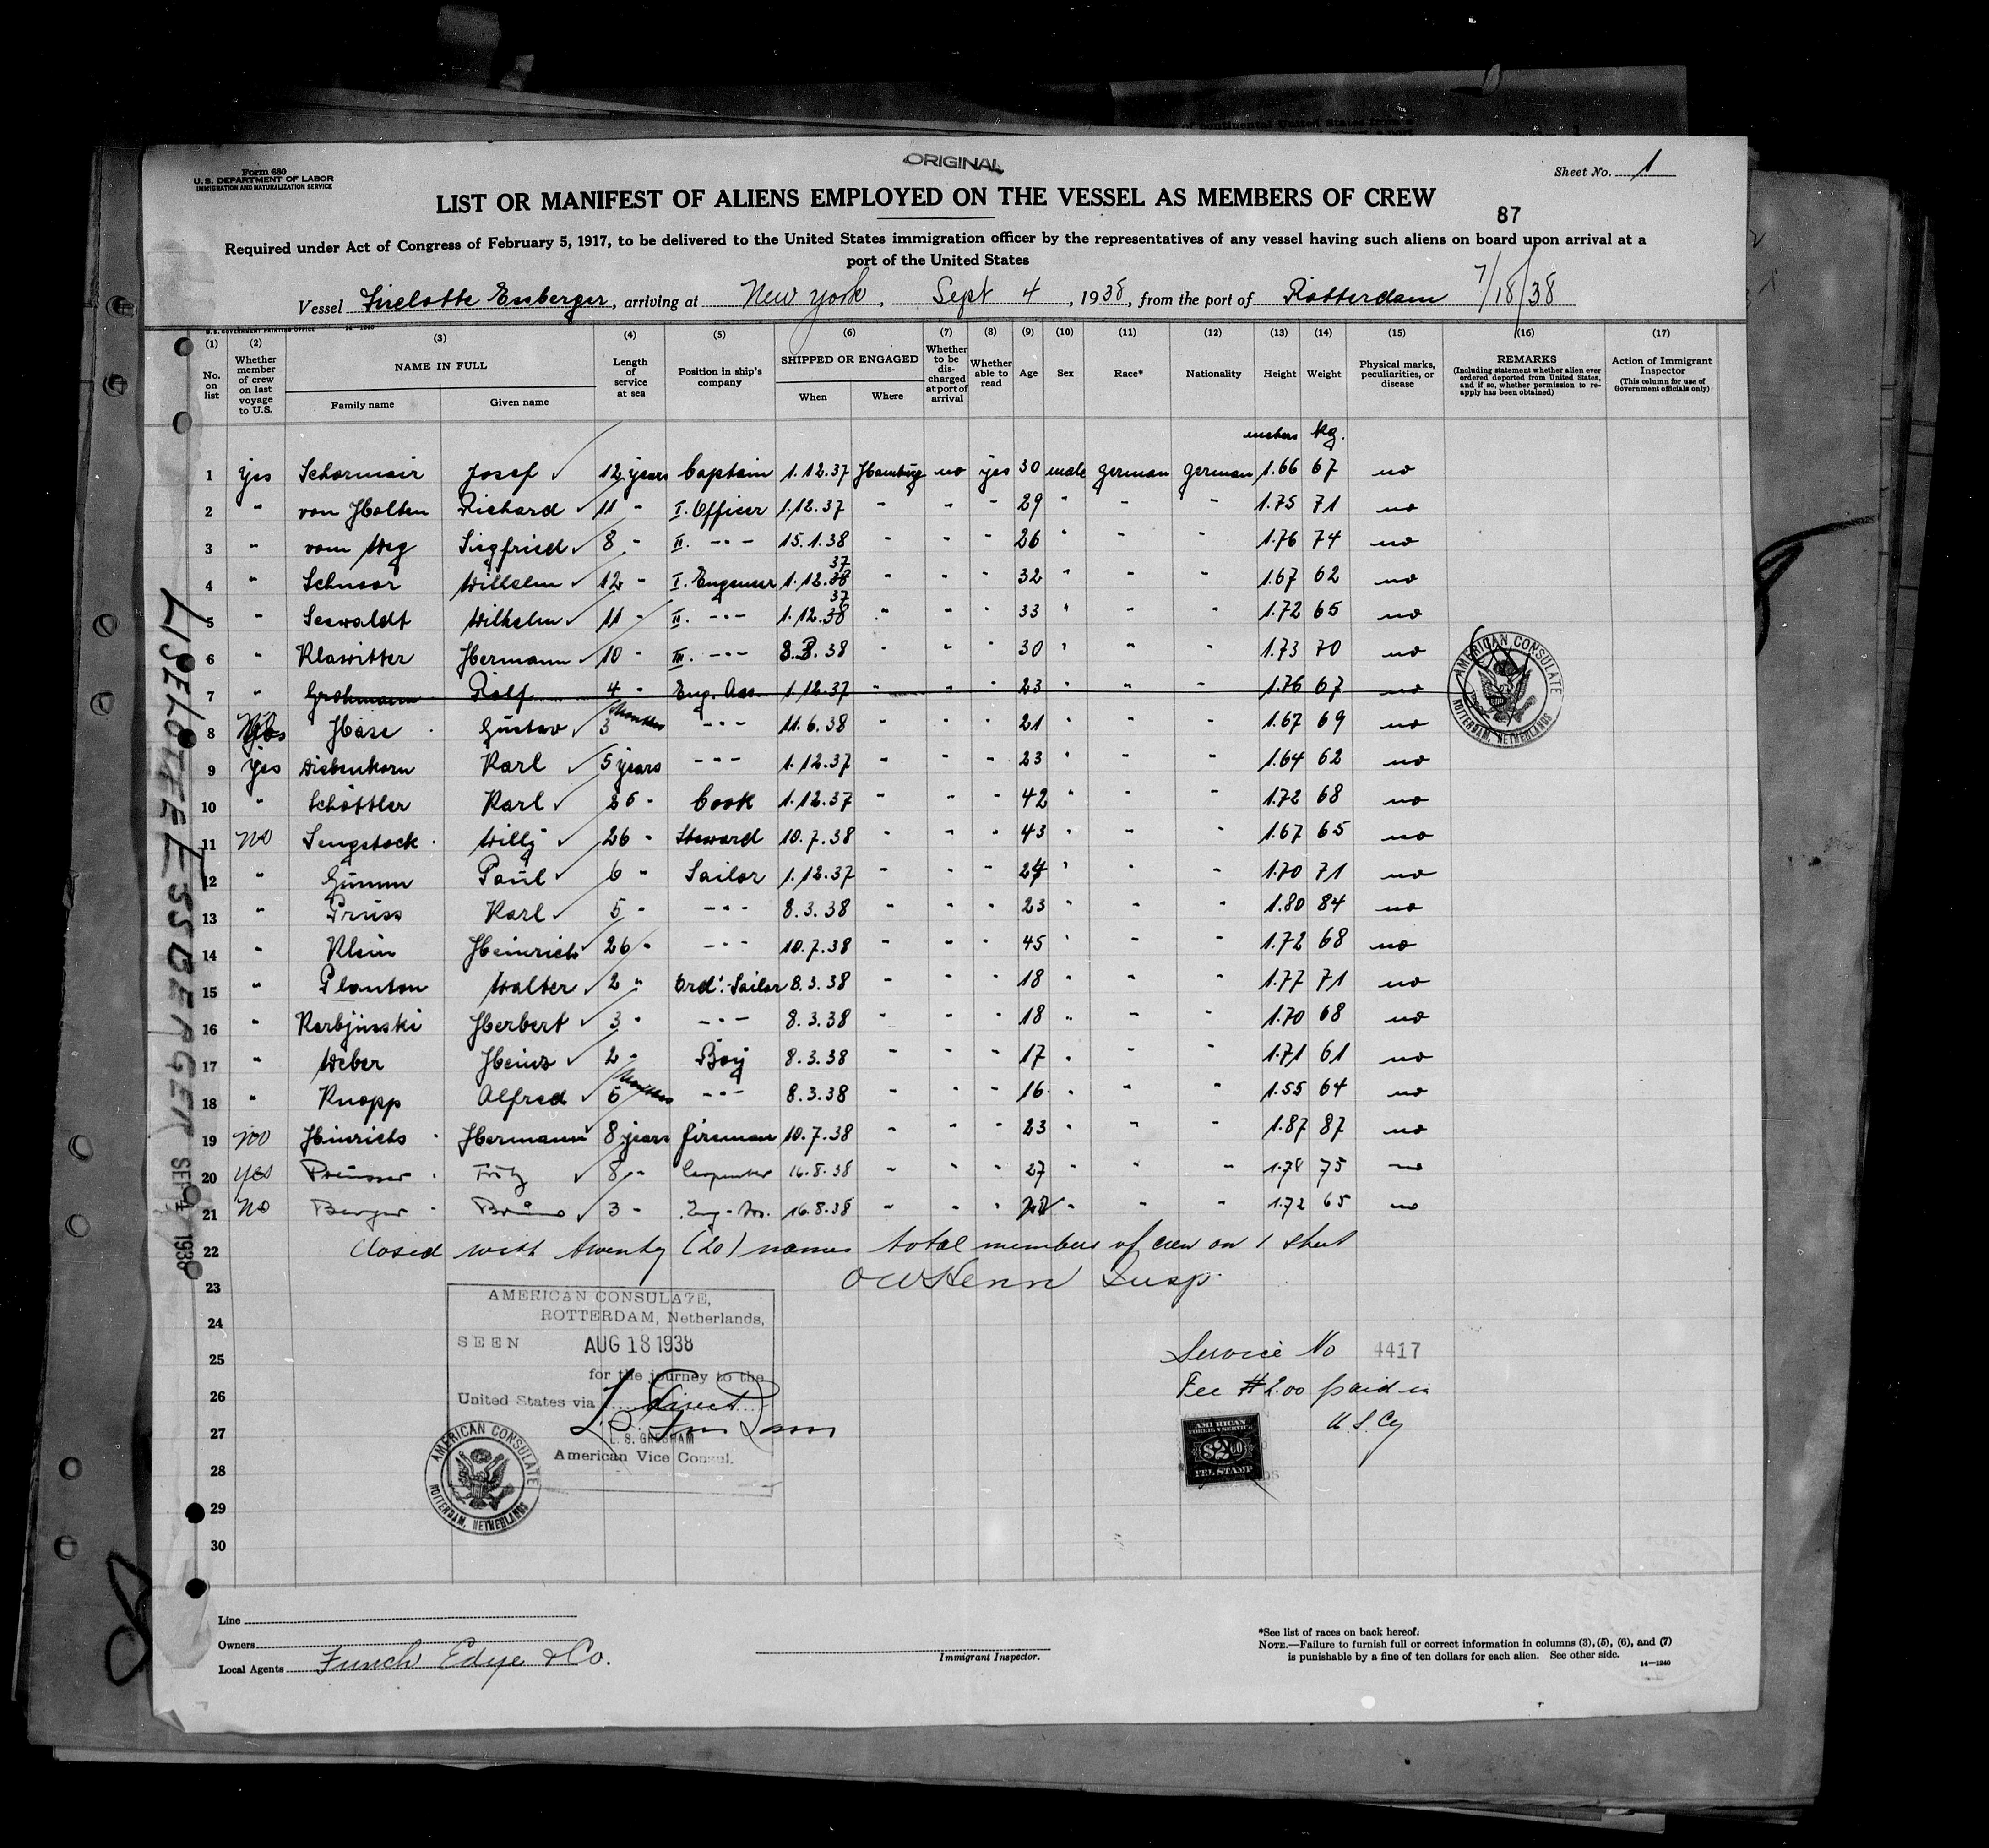 Form 680
U.S. DEPARTMENT OF LABOR
IMMIGRATION AND NATURALIZATION SERVICE
ORIGINAL
Sheet No. 1
LIST OR MANIFEST OF ALIENS EMPLOYED ON THE VESSEL AS MEMBERS OF CREW
87
Required under Act of Congress of February 5, 1917, to be delivered to the United States immigration officer by the representatives of any vessel having such aliens on board upon arrival at a
port of the United States
Vessel Liselotte Essberger, arriving at New York, Sept 4, 1938, from the port of Rotterdam 7/18/38
U.S. GOVERNMENT PRINTING OFFICE 14-1240
(1) (2) (3) (4) (5) (6) (7) (8) (9) (10) (11) (12) (13) (14) (15) (16) (17)
No. on list
Whether member of crew on last voyage to U.S.
NAME IN FULL
Family name Given name
Length of service at sea
Position in ship's company
SHIPPED OR ENGAGED
When Where
Whether to be discharged at port of arrival
Whether able to read
Age
Sex
Race*
Nationality
Height
Weight
Physical marks, peculiarities, or disease
REMARKS
(Including statement whether alien ever ordered deported from United States, and if so, whether permission to reapply has been obtained)
Action of Immigrant Inspector
(This column for use of Government officials only)
meters kg.
1 yes Schormair Josef 12 years Captain 1.12.37 Hamburg no yes 30 male german german 1.66 67 no
2 " von Holten Richard 11 " I. Officer 1.12.37 " " " 29 " " " 1.75 71 no
3 " vom Weg Siegfried 8 " II. -"- 15.1.38 " " " 26 " " " 1.76 74 no
4 " Schnoor Wilhelm 12 " I. Engeneer 1.12.38 37 " " " 32 " " " 1.67 62 no
5 " Seewaldt Wilhelm 11 " II. -"- 1.12.38 37 " " " 33 " " " 1.72 65 no
6 " Klawitter Hermann 10 " III. -"- 8.3.38 " " " 30 " " " 1.73 70 no
7 " Grohmann Rolf 4 " Eng. Ass. 1.12.37 " " " 23 " " " 1.76 67 no
8 Yes Hase Gustav 3 months -"- 11.6.38 " " " 21 " " " 1.67 69 no
9 yes Diebenkorn Karl 5 years -"- 1.12.37 " " " 23 " " " 1.64 62 no
10 " Schöttler Karl 26 " Cook 1.12.37 " " " 42 " " " 1.72 68 no
11 No Sengstock Willy 26 " Steward 10.7.38 " " " 43 " " " 1.67 65 no
12 " Gumm Paul 6 " Sailor 1.12.37 " " " 24 " " " 1.70 71 no
13 " Prüss Karl 5 " -"- 8.3.38 " " " 23 " " " 1.80 84 no
14 " Klein Heinrich 26 " -"- 10.7.38 " " " 45 " " " 1.72 68 no
15 " Planton Walter 2 " Ord. Sailor 8.3.38 " " " 18 " " " 1.77 71 no
16 " Herbert 3 " -"- 8.3.38 " " " 18 " " " 1.70 68 no
17 " Weber Heinz 2 " Boy 8.3.38 " " " 17 " " " 1.71 61 no
18 " Knopp Alfred 6 months -"- 8.3.38 " " " 16 " " " 1.55 64 no
19 No Hinrichs Hermann 8 years fireman 10.7.38 " " " 23 " " " 1.87 87 no
20 yes Preusser Fritz 8 " Carpenter 16.8.38 " " " 27 " " " 1.78 75 no
21 No Berger Bruno 3 " Eng. Ass. 16.8.38 " " " " " " 1.72 65 no
22 Closed with twenty (20) names total members of crew on 1 sheet
23 O W Henn Insp.
24
25
26
27
28
29
30
AMERICAN CONSULATE,
ROTTERDAM, Netherlands,
SEEN AUG 18 1938
for the journey to the
United States via Direct
L. S. GRESHAM
American Vice Consul.
AMERICAN CONSULATE
ROTTERDAM, NETHERLANDS
AMERICAN CONSULATE
ROTTERDAM, NETHERLANDS
Service No 4417
Fee $2.00 paid in
U.S. Cy
AMERICAN
FOREIGN SERVICE
$2.00
FEE STAMP
LISELOTTE ESSBERGER SEP 4 1938
Line
Owners
Local Agents Funch Edye & Co.
Immigrant Inspector.
*See list of races on back hereof.
NOTE.—Failure to furnish full or correct information in columns (3), (5), (6), and (7)
is punishable by a fine of ten dollars for each alien. See other side.
14-1240